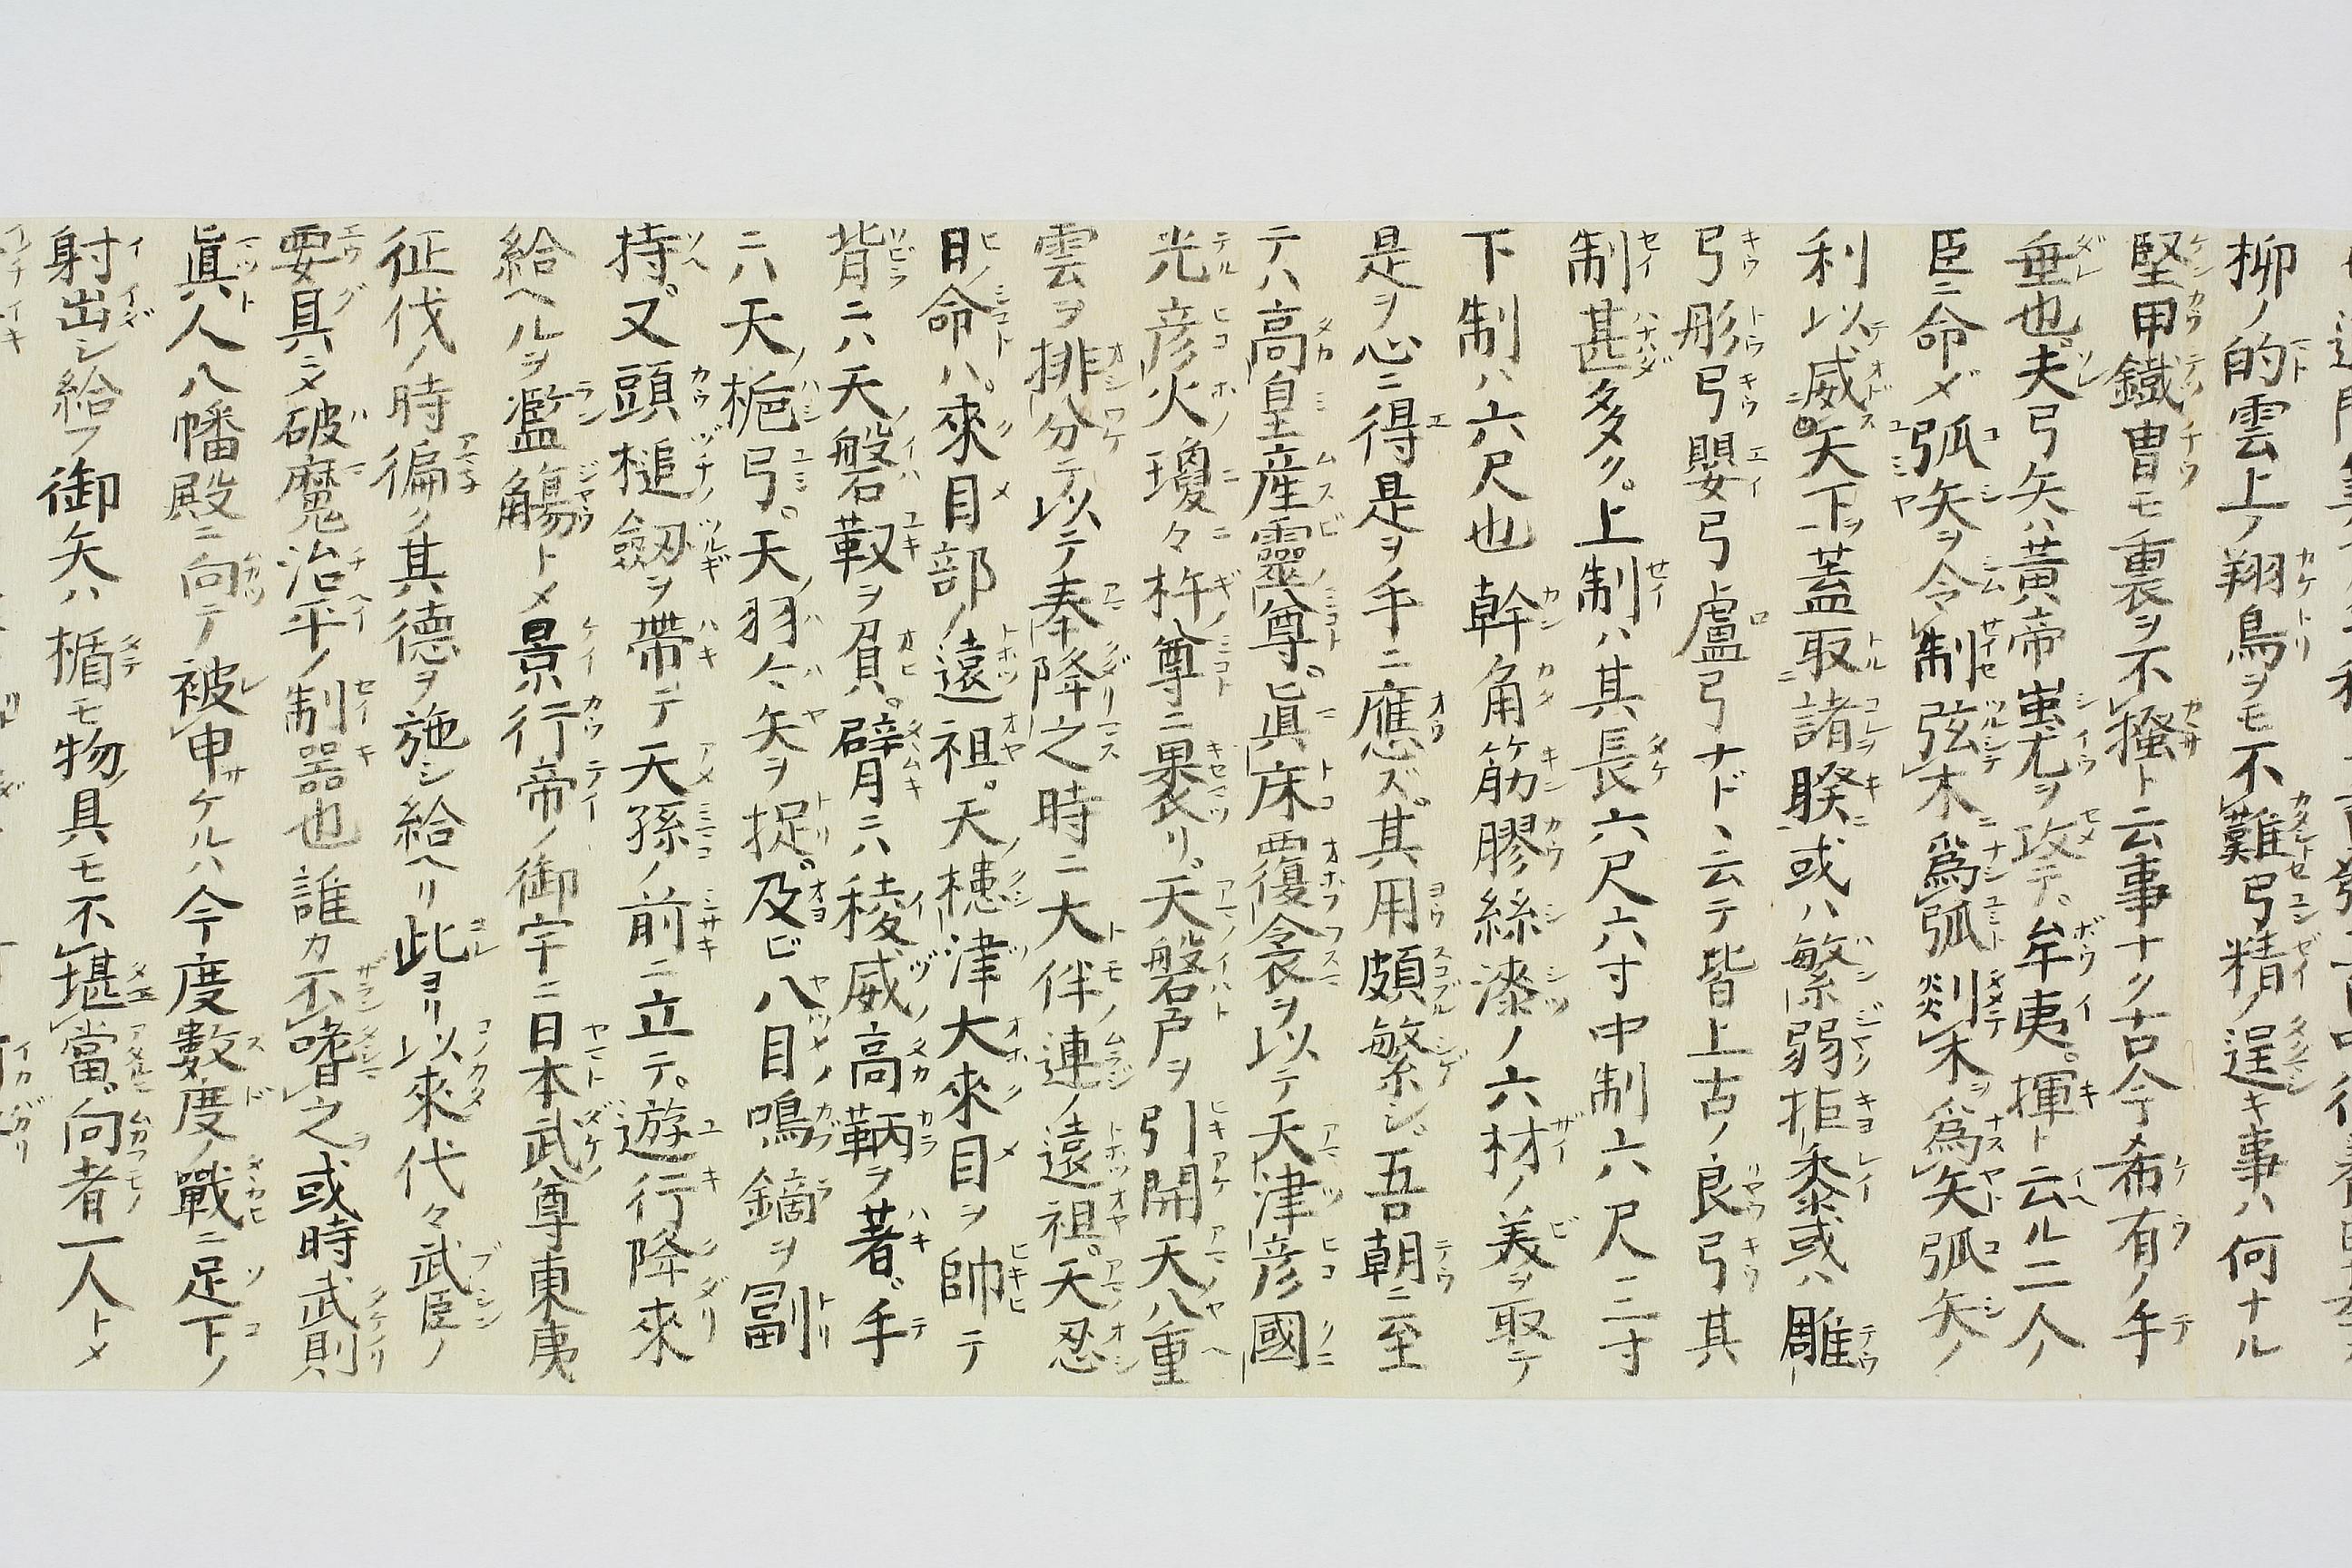 柳ノ的雲上ノ翔鳥ヲモ不難弓精ノ逞キ事ハ何ナル
堅甲鐵冑モ裏ヲ不掻ト云事ナク古今希有ノ手
垂也夫弓矢ハ黄帝蚩尤ヲ攻テ牟夷。揮ト云ル二人ノ
臣ニ命〆弧矢ヲ令制弦木爲弧剡木ヲ爲矢弧矢ノ
利以威天下ヲ蓋取諸睽ニ或ハ繁弱拒黍或ハ雕
弓彤弓嬰弓盧弓ナドヽ云テ皆上古ノ良弓其
制甚多ク。上制ハ其長六尺六寸中制六尺三寸
下制ハ六尺也幹角筋膠絲漆ノ六材ノ美ヲ聚テ
是ヲ心ニ得是ヲ手ニ應ズ。其用頗繁シ。吾朝ニ至
テハ高皇産靈尊。眞床覆衾ヲ以テ天津彦國
光彦火瓊々杵尊ニ裹リ。天磐戸ヲ引開天八重
雲ヲ排分テ以テ奉降之時ニ大伴連ノ遠祖。天忍
日命ハ。來目部ノ遠祖。天槵津大來目ヲ帥テ
背ニハ天磐靫ヲ負。臂ニハ稜威高鞆ヲ著。手
ニハ天梔弓。天羽々矢ヲ捉。及ビ八目鳴鏑ヲ副
持。又頭槌劔ヲ帶テ天孫ノ前ニ立テ。遊行降來
給ヘルヲ濫觴ト〆景行帝ノ御宇ニ日本武尊東夷
征伐ノ時徧ク其德ヲ施シ給ヘリ此ヨリ以來代々武臣ノ
要具ニ〆破魔治平ノ制器也誰カ不嗜之ヲ或時武則
眞人八幡殿ニ向テ被申ケルハ今度數度ノ戰ニ足下ノ
射出シ給フ御矢ハ楯モ物ノ具モ不堪當。向者一人ト〆